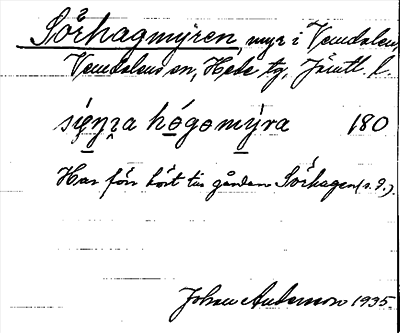 Sörhagmyren, myr i Vemdalen,
Vemdalens sn, Hede tg, Jämtl. l.
hǫgǝmýra 180
Har förr hört till gården Sörhagen (s. d.).
Johan Anderson 1935